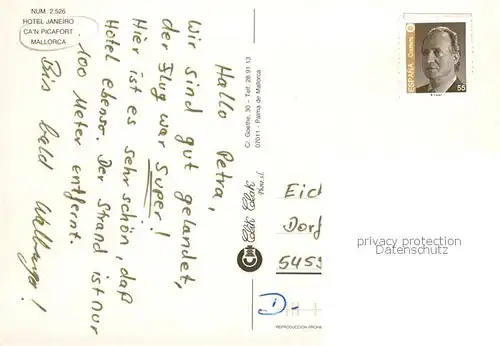 NUM. 2.526
HOTEL JANEIRO
CA'N PICAFORT
MALLORCA
Hallo Petra,
Wir sind gut gelandet,
der Flug war super!
Hier ist es sehr schön, daß
Hotel ebenso. Der Strand ist nur
100 Meter entfernt.
Bis bald
C/. Goethe, 30 - Telf. 28 91 13
07011 - Palma de Mallorca
Click Clack
ESPAÑA
Correos
55
Eich
Dorf
5455
privacy protection
Datenschutz
D-
REPRODUCCION PROHIB